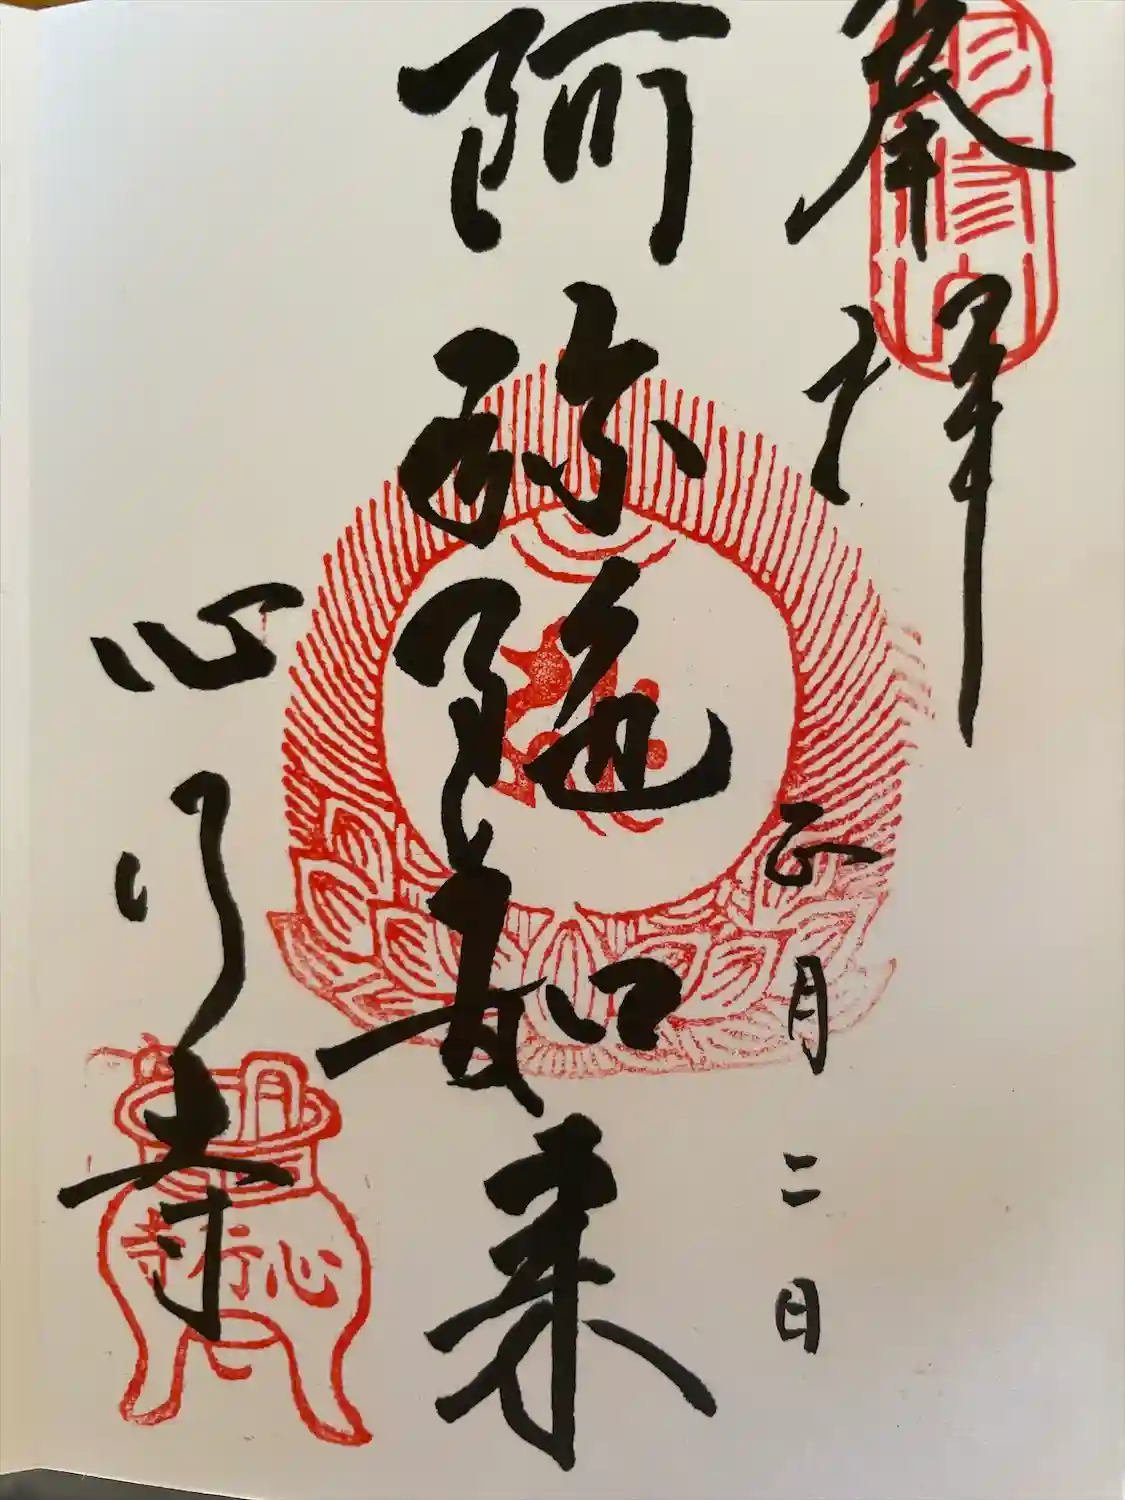 奉拝
正月二日
阿弥陀如来
心行寺
心行寺